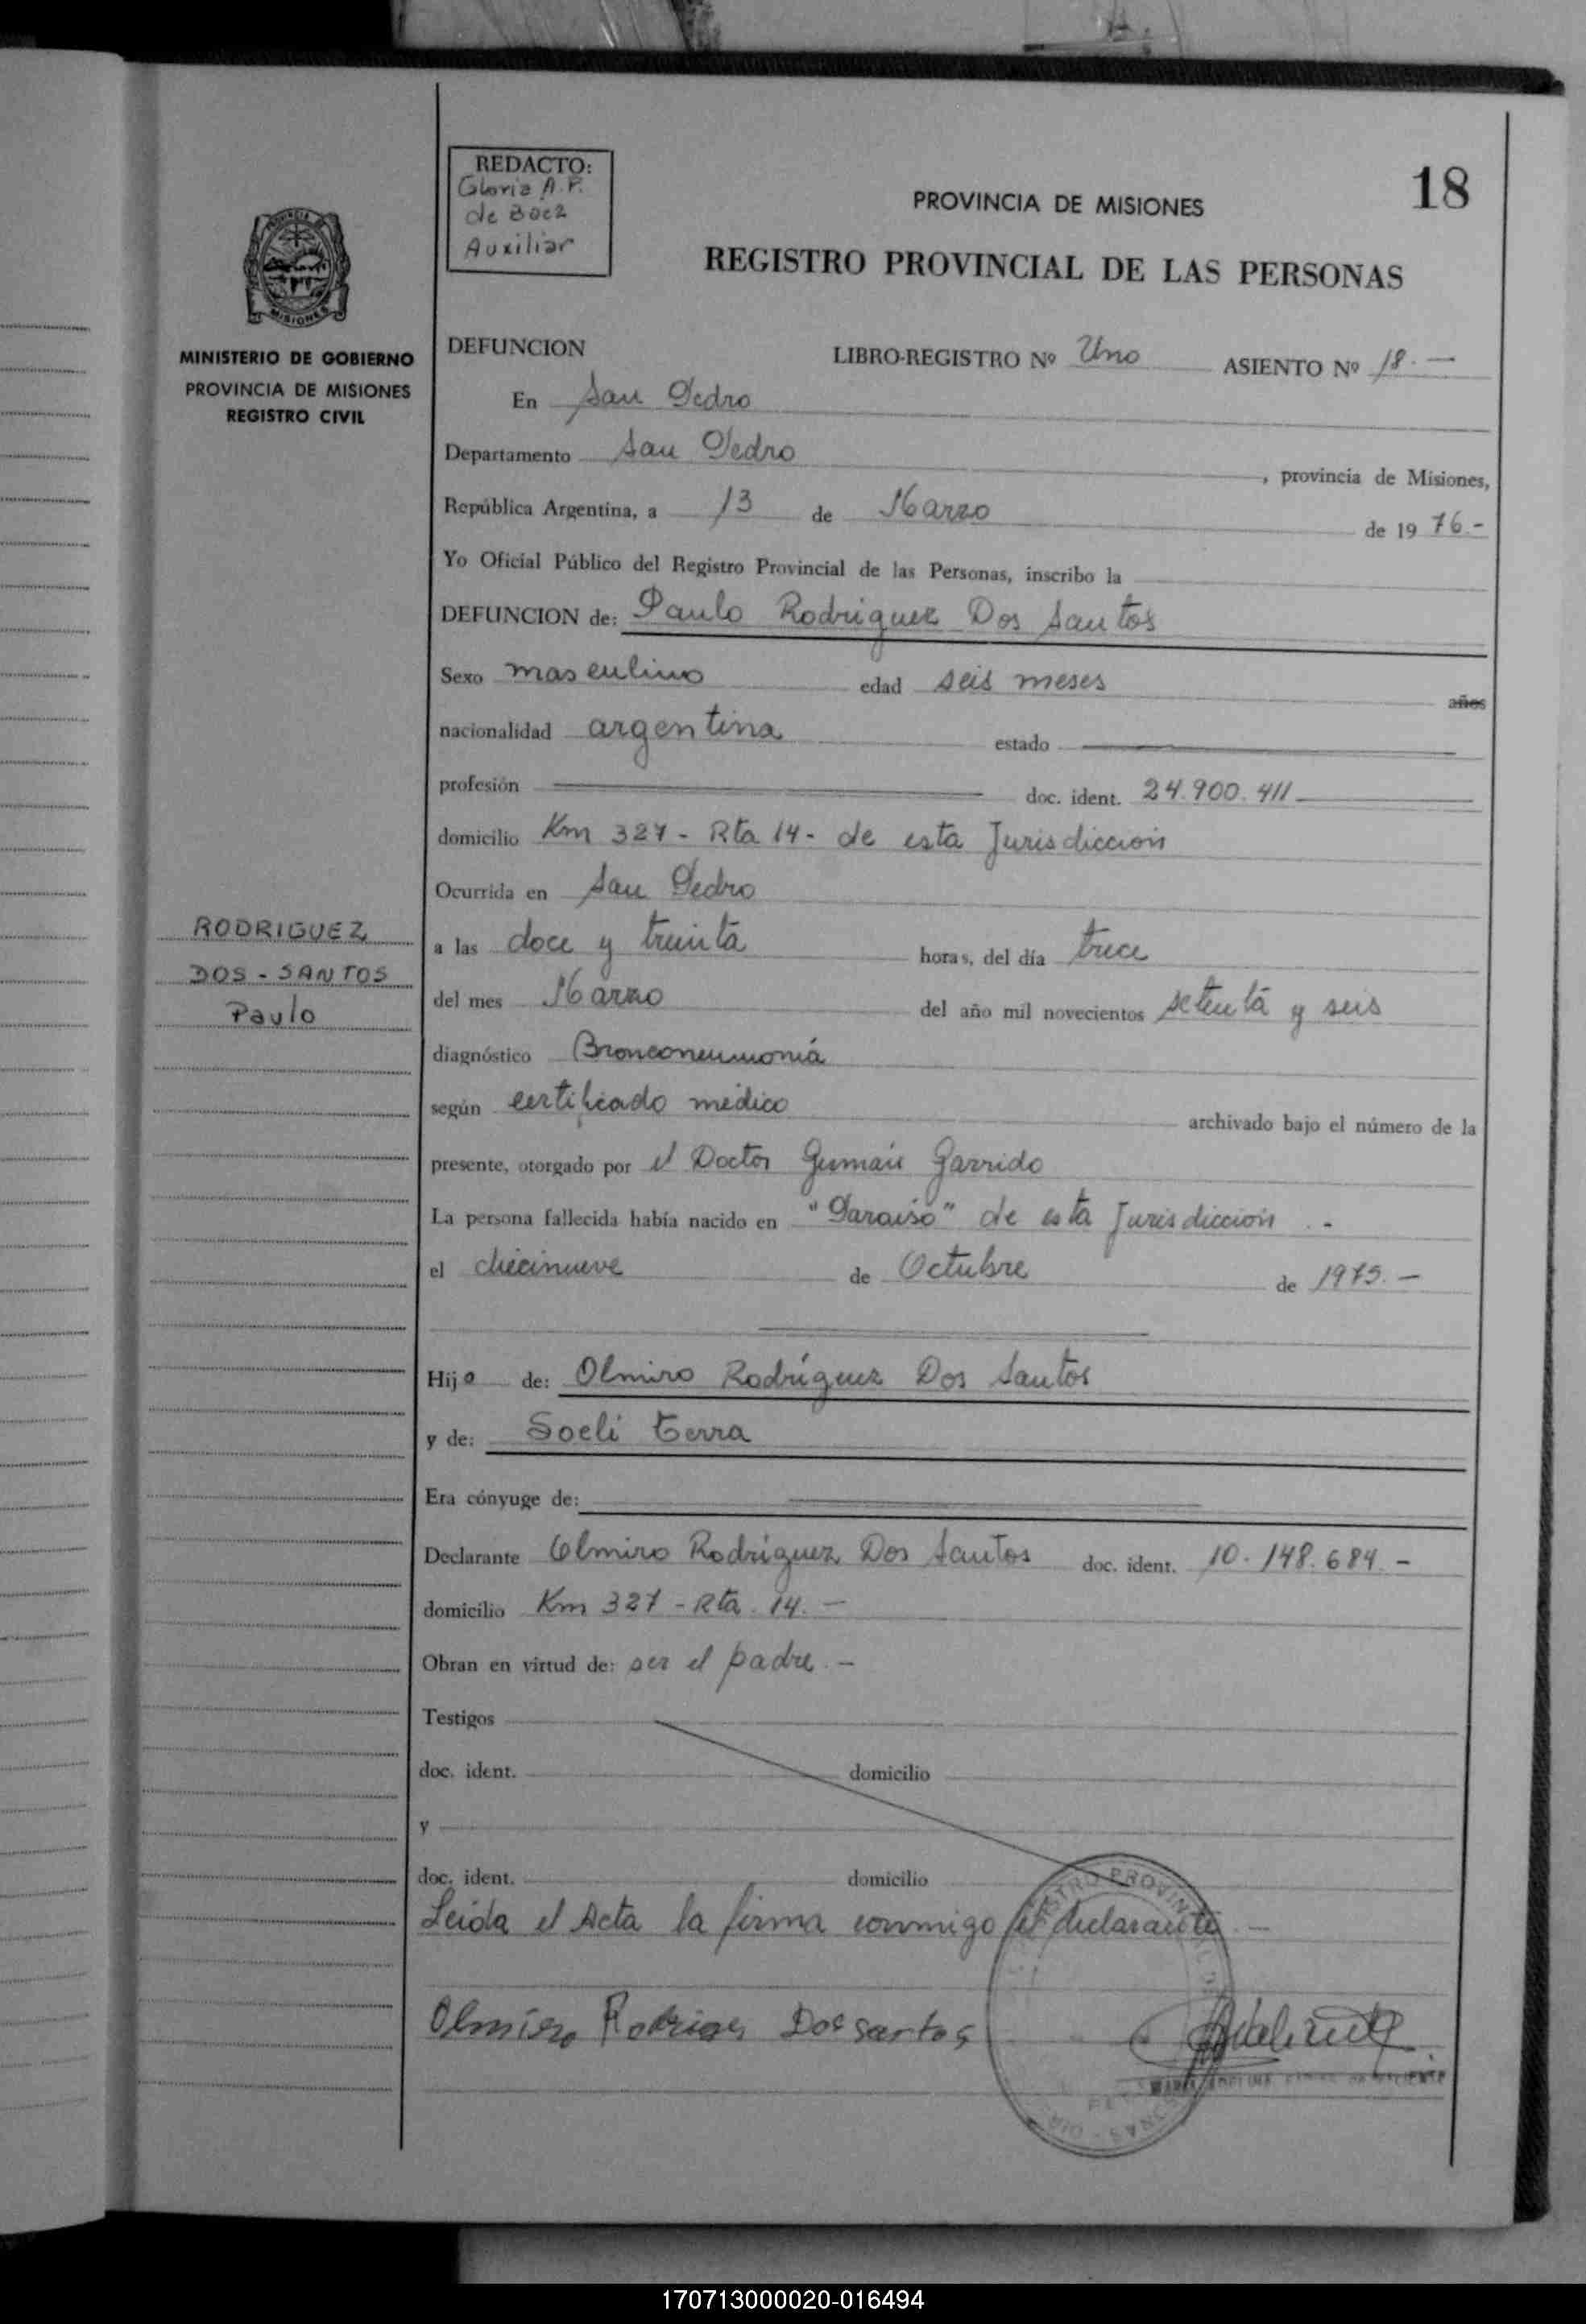 18
REDACTO:
Gloria A. P.
de Baez
Auxiliar
PROVINCIA DE MISIONES
REGISTRO PROVINCIAL DE LAS PERSONAS
MINISTERIO DE GOBIERNO
PROVINCIA DE MISIONES
REGISTRO CIVIL
DEFUNCION LIBRO-REGISTRO Nº Uno ASIENTO Nº 18.-
En San Pedro
Departamento San Pedro, provincia de Misiones,
República Argentina, a 13 de Marzo de 1976.-
Yo Oficial Público del Registro Provincial de las Personas, inscribo la
DEFUNCION de: Paulo Rodriguez Dos Santos
Sexo masculino edad seis meses años
nacionalidad argentina estado
profesión doc. ident. 24.900.411
domicilio Km 327 - Rta 14 - de esta Jurisdicción
Ocurrida en San Pedro
a las doce y treinta horas, del día trece
del mes Marzo del año mil novecientos setenta y seis
RODRIGUEZ
DOS-SANTOS
Paulo
diagnóstico Bronconeumonía
según certificado médico archivado bajo el número de la
presente, otorgado por el Doctor Germán Garrido
La persona fallecida había nacido en "Paraiso" de esta Jurisdicción.-
el diecinueve de Octubre de 1975.-
Hijo de: Olmiro Rodríguez Dos Santos
y de: Soeli Terra
Era cónyuge de:
Declarante Olmiro Rodríguez Dos Santos doc. ident. 10.148.684.-
domicilio Km 327 - Rta. 14.-
Obran en virtud de: ser el padre.-
Testigos
doc. ident. domicilio
y
doc. ident. domicilio
Leída el Acta la firma conmigo el declarante.-
Olmiro Rodrigues Dos santos
170713000020-016494